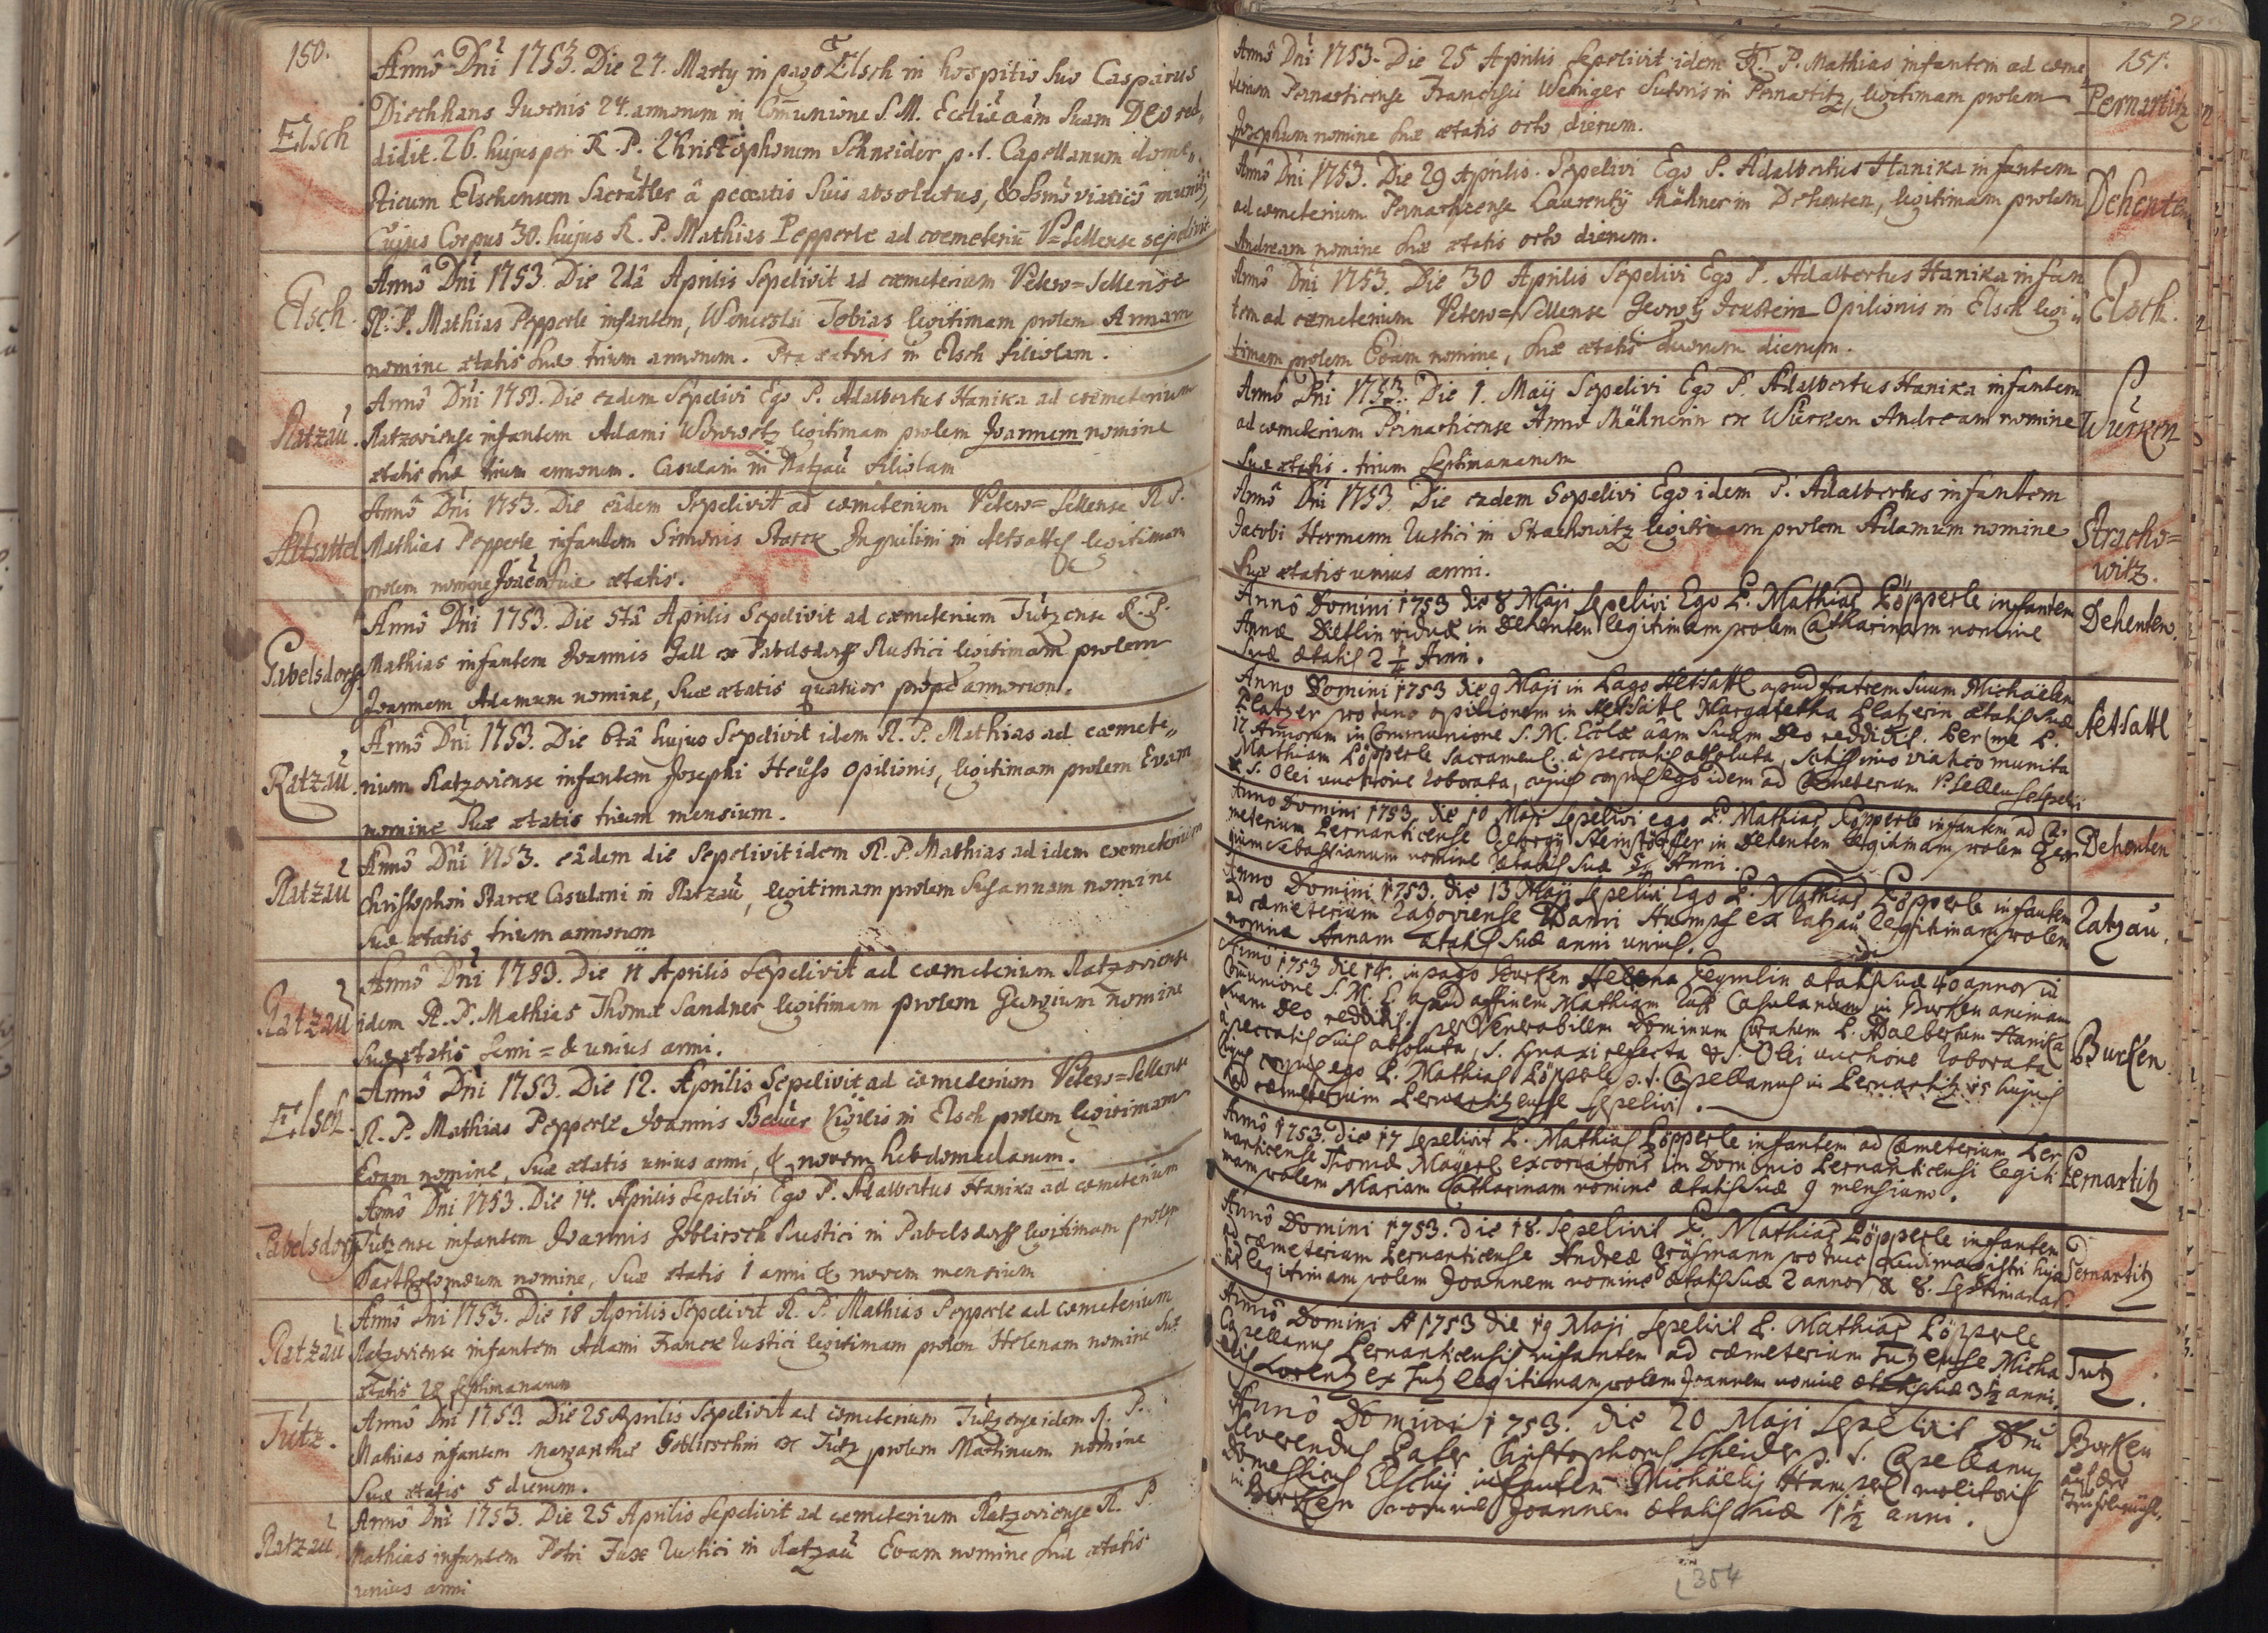 150.
Elsch
Annô Dnî 1753. Die 27. Marty in pago Elsch in hospitiô suo Casparus
Diechhans Juvenis 24. annorum in Communione S. M. Ecclîe aâm suam DEO red,,
didit. 26. hujus per R. P. Christophorum Schneider p. t. Capellanum domes,,
ticum Elschensem Sacraîter â peccatis suis absolutus, & Ssmô viaticô
Cujus Corpus 30. hujus R. P. Mathias Pepperle ad coemeteriū V=Sellense sepelivit
Elsch.
Annô Dnî 1753. Die 2dâ Aprilis Sepelivit ad coemeterium Vetero=Sellense
R. P. Mathias Pepperle infantem, Wenceslai Tobias legitimam prolem Annam
nomine ætatis suæ trium annorum. in Elsch filiolam.
Ratzaŭ.
Annô Dnî 1753. Die eadem Sepelivi Ego P. Adalbertus Hanika ad coemeterium
Ratzoviense infantem Adami legitimam prolem Joannem nomine
ætatis suæ trium annorum. Casulani in Ratzaŭ filiolam
Altsattel
Annô Dnî 1753. Die eâdem Sepelivit ad coemeterium Vetero=Sellense R. P.
Mathias Pepperle infantem Simonis Starck Inquilini in Altsattel legitimam
prolem nomine suæ ætatis.
Pabelsdorff
Annô Dnî 1753. Die 5tâ Aprilis Sepelivit ad coemeterium Tützense R. P.
Mathias infantem Joannis Gall ex Pabelsdorff Rustici legitimam prolem
Joannem Adamum nomine, suæ ætatis quatuor prope annorum.
Ratzaŭ.
Annô Dnî 1753. Die 6tâ hujus Sepelivit idem R. P. Mathias ad coemete,,
rium Ratzoviense infantem Josephi Heüss Opilionis, legitimam prolem Evam
nomine suæ ætatis trium mensium.
Ratzaŭ
Annô Dnî 1753. eâdem die Sepelivit idem R. P. Mathias ad idem coemeterium
Christophori Starck Casulani in Ratzaŭ, legitimam prolem Susannam nomine
suæ ætatis trium annorum
Ratzaŭ
Annô Dnî 1753. Die 11 Aprilis Sepelivit ad coemeterium Ratzoviense
idem R. P. Mathias Thomæ Sandner legitimam prolem Georgium nomine
suæ ætatis semi = & unius anni.
Elsch.
Annô Dnî 1753. Die 12. Aprilis Sepelivit ad coemeterium Vetero=Sellense
R. P. Mathias Pepperle Joannis Beŭer Vigilis in Elsch prolem legitimam
Evam nomine, suæ ætatis unius anni, & novem hebdomadarum.
Pabelsdorff
Annô Dnî 1753. Die 14. Aprilis Sepelivi Ego P. Adalbertus Hanika ad coemeterium
Tützense infantem Joannis Goblirsch Rustici in Pabelsdorff legitimam prolem
Bartholomæum nomine, suæ ætatis 1 anni & novem mensium
Ratzaŭ
Annô Dnî 1753. Die 18 Aprilis Sepelivit R. P. Mathias Pepperle ad coemeterium
Ratzoviense infantem Adami Franck Rustici legitimam prolem Helenam nomine suæ
ætatis 28 septimanarum
Tütz.
Annô Dnî 1753. Die 25 Aprilis Sepelivit ad coemeterium Tützense idem R. P.
Mathias infantem Margarethæ Goblirschin ex Tütz prolem Martinum nomine
suæ ætatis 5 dierum.
Ratzaŭ
Annô Dnî 1753. Die 25 Aprilis Sepelivit ad coemeterium Ratzoviense R. P.
Mathias infantem Petri Fux Rustici in Ratzaŭ Evam nomine suæ ætatis
unius anni
151.
Annô Dnî 1753. Die 25 Aprilis Sepelivit idem R. P. Mathias infantem ad coeme
terium Pernarticense Francisci Weniger Sutoris in Pernartitz, legitimam prolem
Josephum nomine suæ ætatis octo dierum.
Pernartitz
Annô Dnî 1753. Die 29 Aprilis. Sepelivi Ego P. Adalbertus Hanika infantem
ad coemeterium Pernarticense Laurenty Mähner in Dehenten, legitimam prolem
Andream nomine suæ ætatis octo dierum.
Dehenten
Annô Dnî 1753. Die 30 Aprilis Sepelivi Ego P. Adalbertus Hanika infan
tem ad coemeterium Vetero=Sellense Georgy Opilionis in Elsch legi
timam prolem Evam nomine, suæ ætatis duorum dierum.
Elsch.
Annô Dnî 1753. Die 1. Maij Sepelivi Ego P. Adalbertus Hanika infantem
ad coemeterium Pernarticense Annæ Mähnerin ex Würken Andream nomine
suæ ætatis. trium Septimanarum
Würken
Annô Dnî 1753. Die eadem Sepelivi Ego idem P. Adalbertus infantem
Jacobi Hermann Rustici in Strachowitz legitimam prolem Adamum nomine
suæ ætatis unius anni.
Stracho=
witz.
Annô Domini 1753 die 8 Maji Sepelivi Ego P. Mathias Pöpperle infantem
Annæ Dietlin viduæ in Dehenten legitimam prolem Catharinam nomine
suæ ætatis 2 ¼ Anni.
Dehenten.
Anno Domini 1753 die 9 Maji in Pago Altsattl apud fratrem suum Michäelem
Platzer pro tunc opilionem in Altsattl Margaretha Platzerin ætatis suæ
17 Annorum in Communione S. M. Ecclæ aâm suam Deo reddidit. Per me P.
Mathiam Pöpperle Sacrament: a peccatis absoluta, Sctissimo viatico munita
& S. Olei unctione roborata, cujus corpus Ego idem ad Coemeterium V. Sellense sepelivi
Altsattl
Anno Domini 1753 die 10 Maji Sepelivi ego P. Mathias Pöpperle infantem ad Coe-
meterium Pernarticense Georgÿ Steinstösser in Dehenten legitimam prolem Geor
gium Sebastianum nomine ætatis suæ Anni.
Dehenten
Anno Domini 1753. die 13 Maji Sepelivi Ego P. Mathias Pöpperle infantem
ad coemeterium Razoviense Adami Stumpf ex Ratzaŭ legitimam prolem
nomine Annam ætatis suæ anni unius.
Ratzau.
Anno 1753 die 14. in pago Purken Hellena ætatis suæ 40 annor in
Communione S. M. E. apud affinem Mathiam Casulanum in Purken animam
suam Deo reddidit. per Venerabilem Dominum Curatum P. Adalbertum Hanika
a peccatis suis absoluta, S. synaxi refecta & S. Olei unctione roborata
Cujus corpus ego P. Mathias Pöpperle p. t. Capellanus in Pernartitz 15 hujus
ad coemeterium Pernartizense sepelivi.
Burken.
Annô 1753. die 17 Sepelivit P. Mathias Pöpperle infantem ad Coemeterium Per
narticense Thomæ Mayerl excoriatoris in Dominio Pernarticensi legiti
mam prolem Mariam Catharinam nomine ætatis suæ 9 mensium.
Pernartitz
Annô Domini 1753. die 18. Sepelivit P. Mathias Pöpperle infantem
ad coemeterium Pernarticense Andreæ Gräsmann pro tunc ludimagistri huja
tis legitimam prolem Joannem nomine ætatis suæ 2 annor & 8. septimanar.
Pernartitz
Annô Domini 1753 die 19 Maji Sepelivit P. Mathias Pöpperle
Capellanus Pernarticensis infantem ad coemeterium Tutzense Micha
elis Lorentz ex Tutz legitimam prolem Joannem nomine ætatis suæ 3½ anni.
Tutz.
Annô Domini 1753. die 20 Maji Sepelivit
Reverendus Pater Christophorus Scheider p. t. Capellanus
Domesticus Elschij infantem Michäelij Hampel molitoris
in Burken nomine Joannem ætatis suæ 1½ anni.
Burken
auf der
354